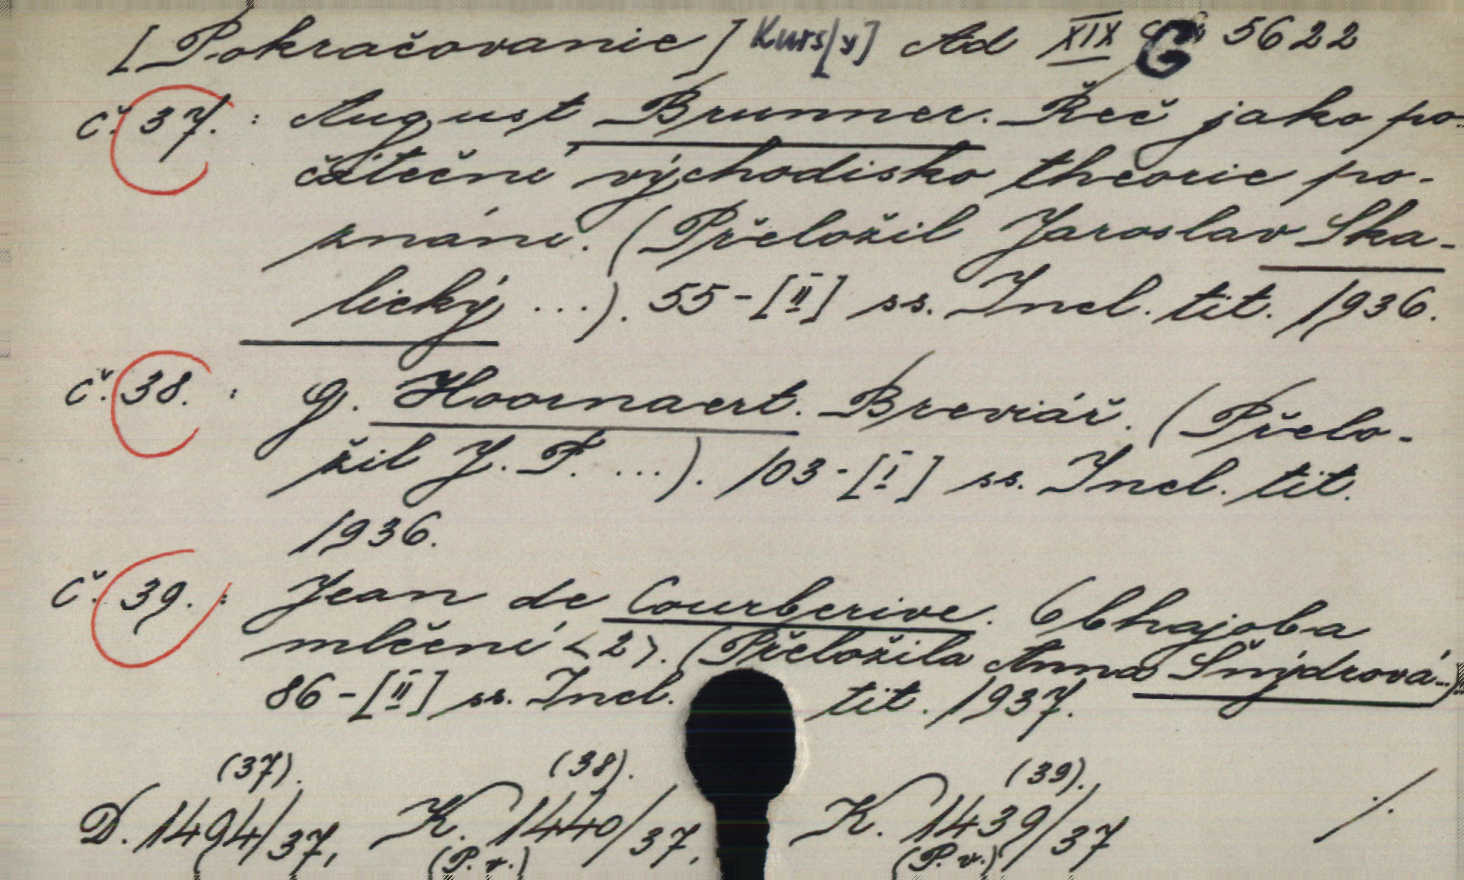 [Pokračovanie] Kurs[y] Ad XIX G 5622
č. 37. : August Brunner. Řeč jako po-
čáteční východisko theorie po-
znání. (Přeložil Jaroslav Ska-
lický ...). 55-[II] ss. Incl. tit. 1936.
č. 38. : G. Hoornaert. Breviář. (Přelo-
žil J. F. ...). 103-[I] ss. Incl. tit.
1936.
č. 39. : Jean de Courberive. Obhajoba
mlčení <2>. (Přeložila Anna Šnýdrová...)
86-[II] ss. Incl. tit. 1937.
(37). (38). (39).
D. 1494/37, K. 1440/37, K. 1439/37 ./.
(P. v.) (P. v.)